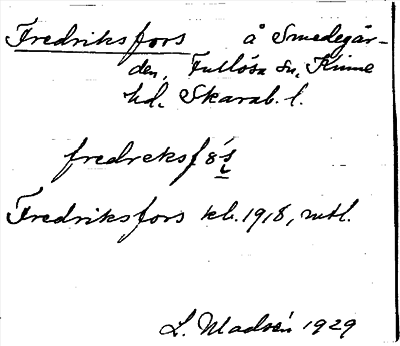 Fredriksfors å Smedegår-
den, Fullösa sn, Kinne
hd. Skarab. l.
fredreksf
Fredriksfors kb. 1918, mtl.
L. Madsén 1929